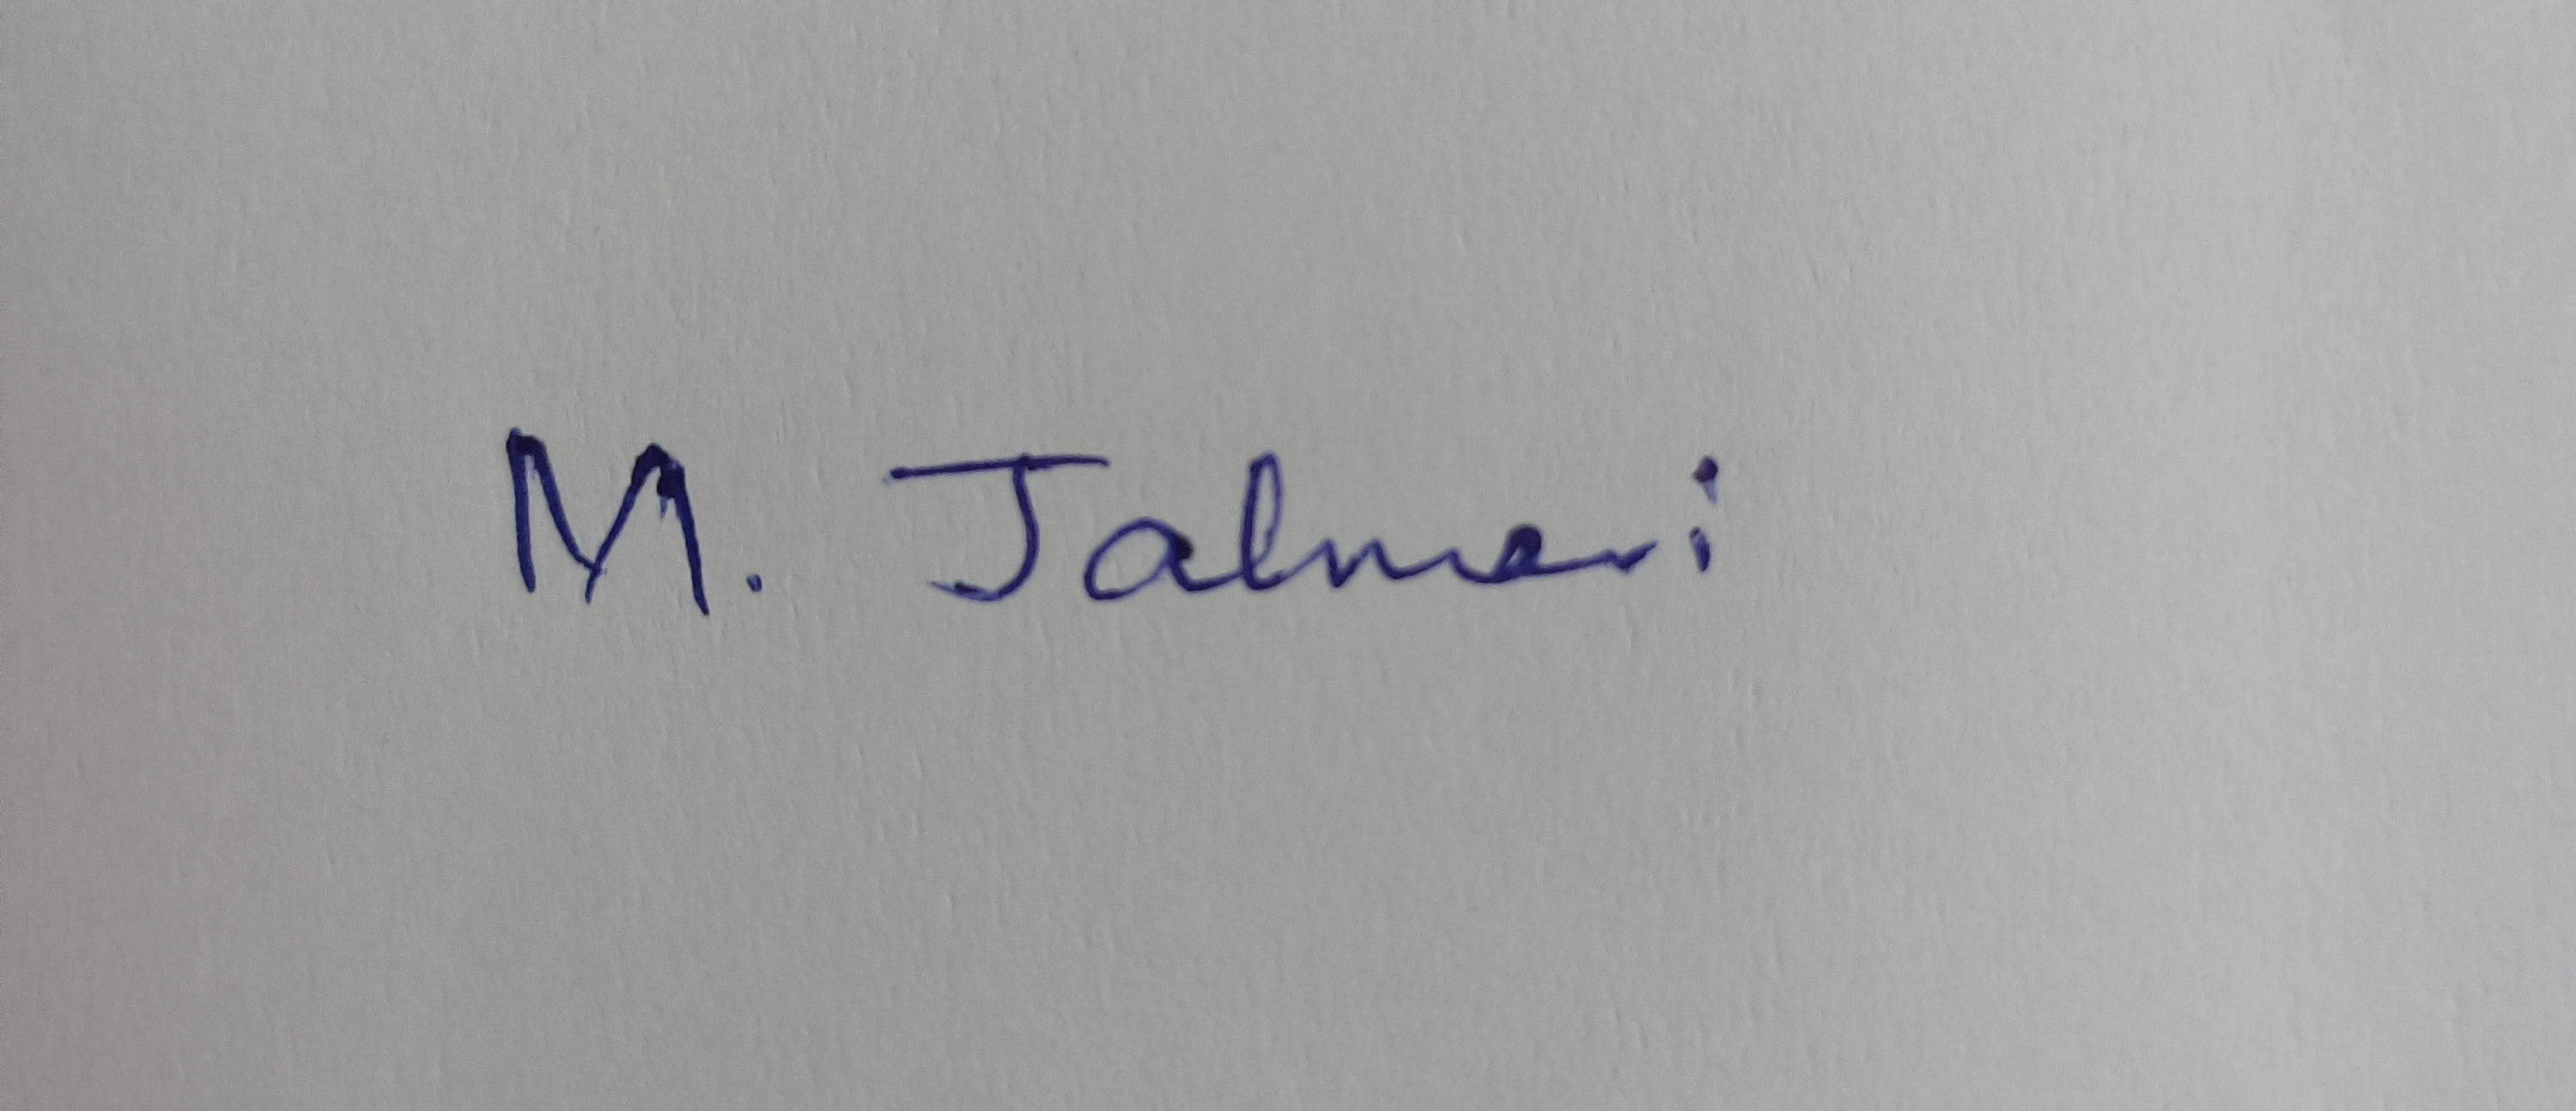 M. Jalmari